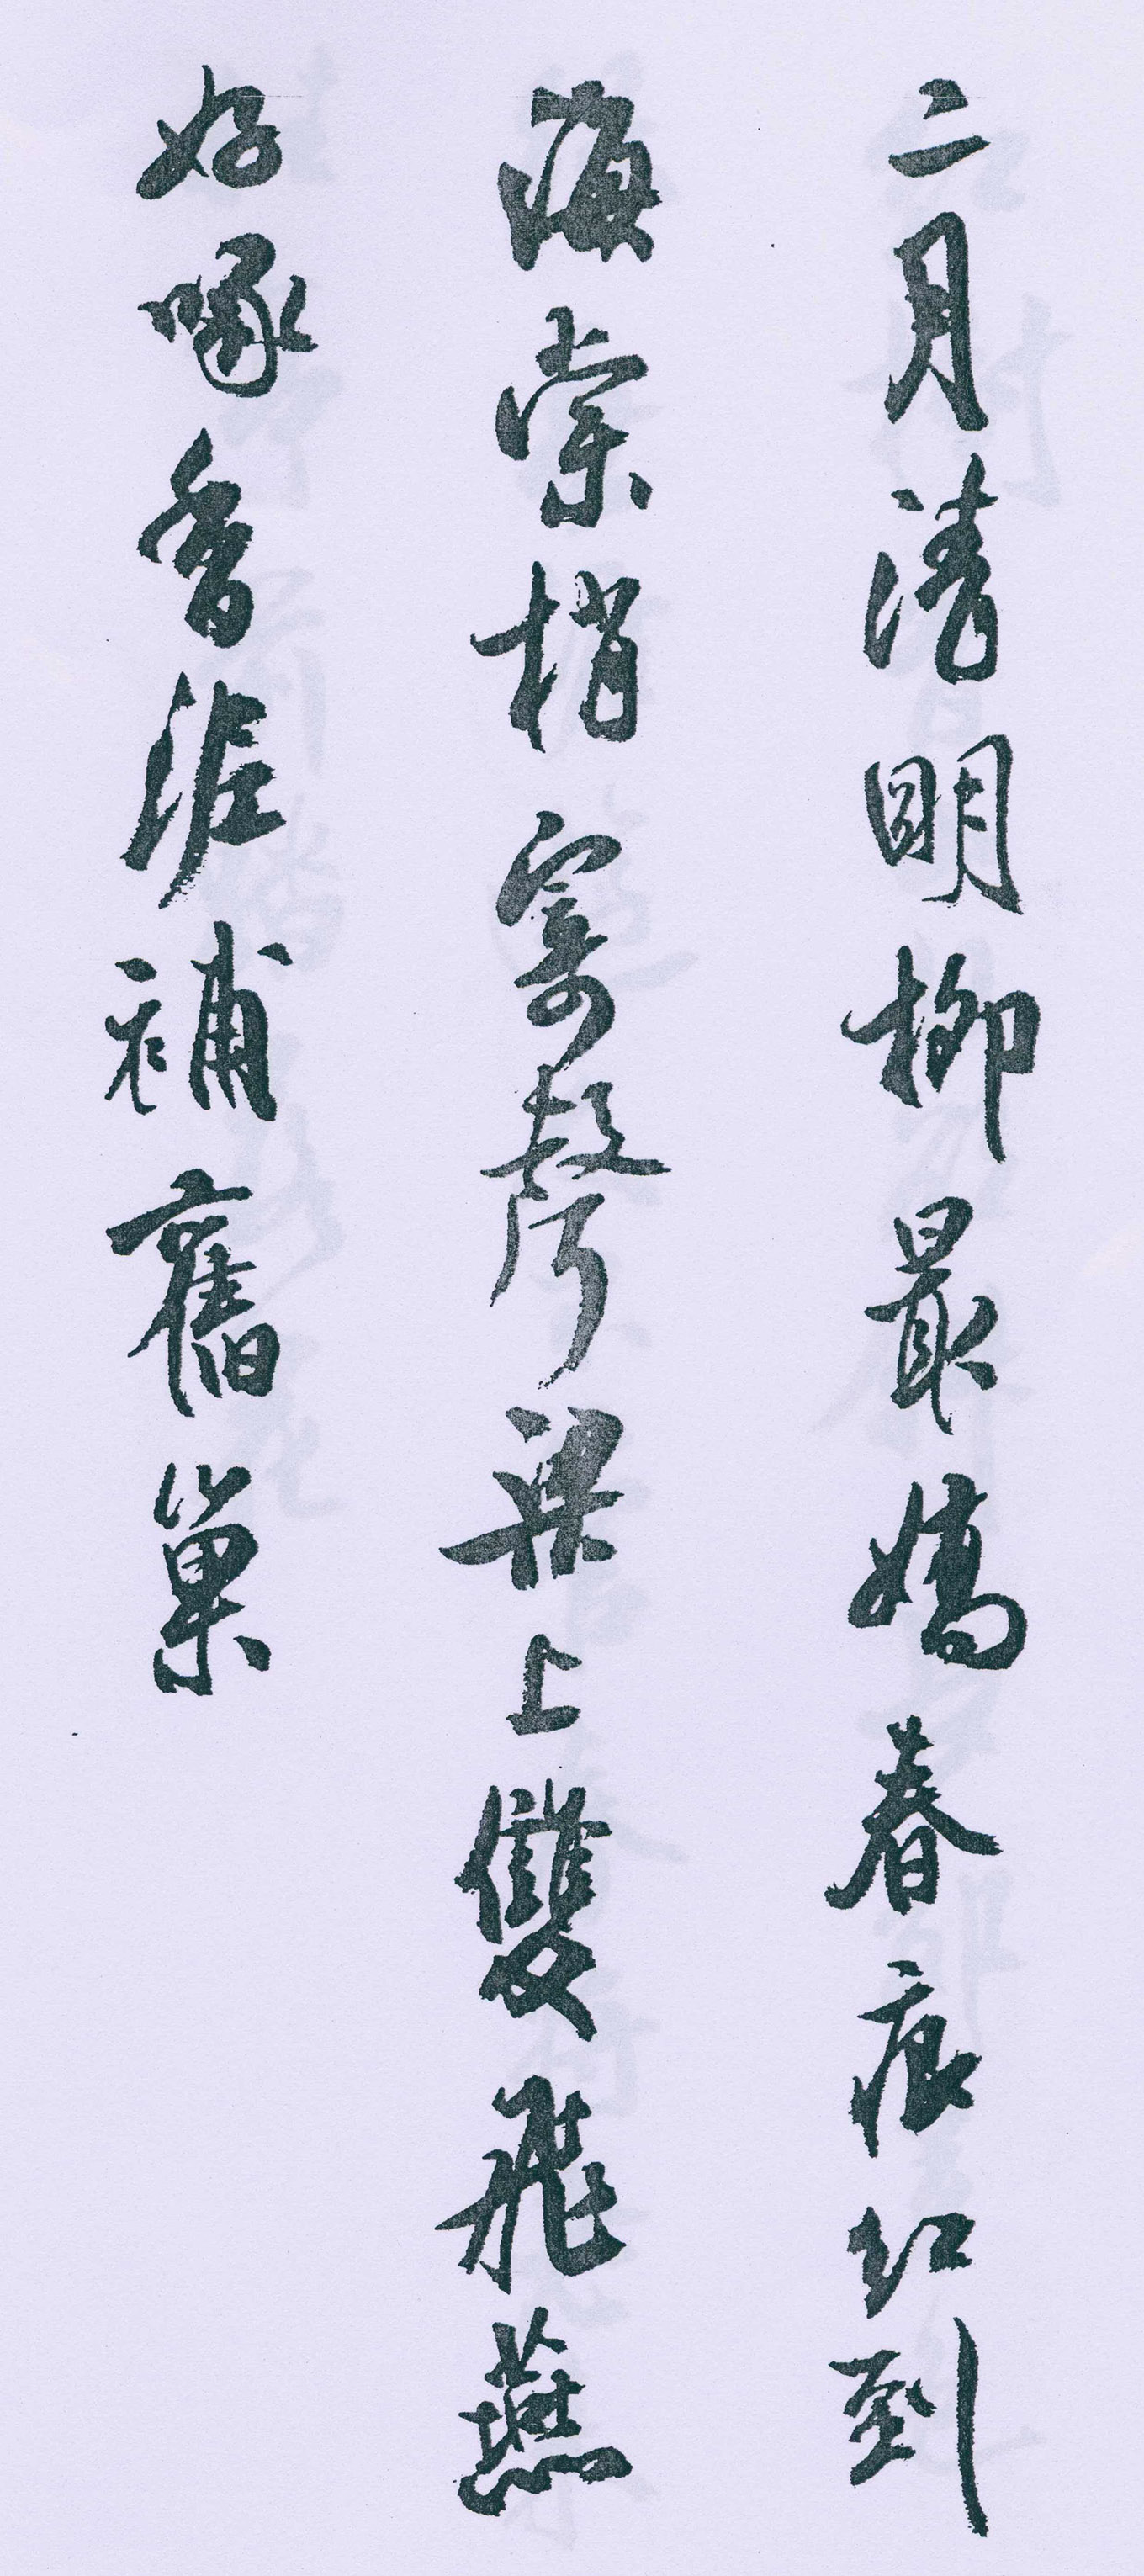 二月清明柳最嬌春痕紅到
海棠梢寄聲梁上雙飛燕
好啄香泥補舊巢